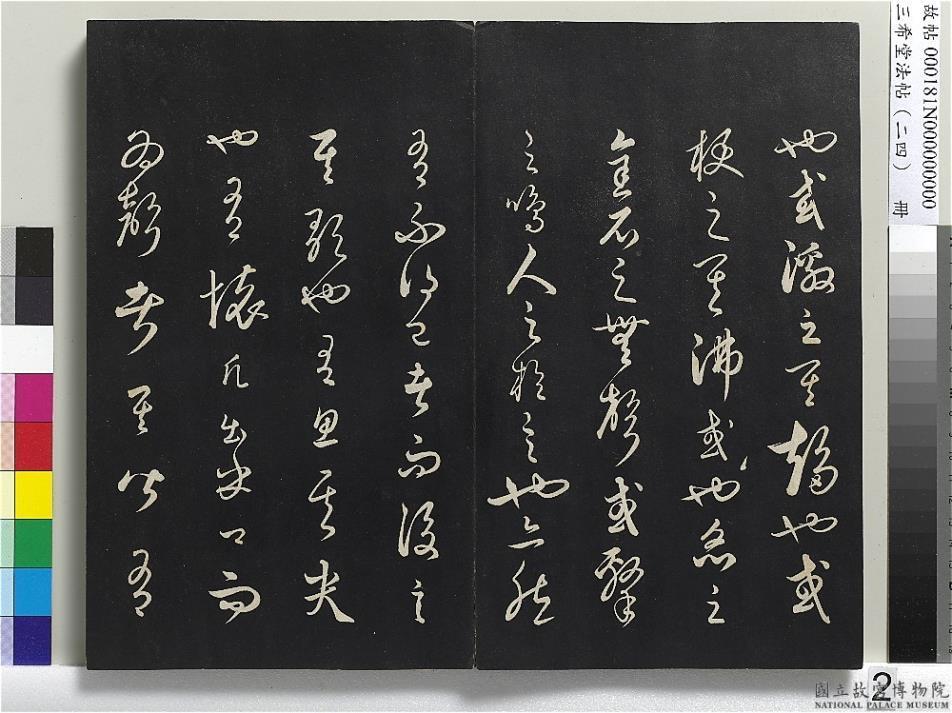 也或激之其趨也或
梗之其沸或也炙之
金石之無聲或擊
之鳴人之於言也亦然
有不得已者而後言
其歌也有思其哭
也有懷凡出乎口而
為聲者其皆有
故帖 000181N000000000
三希堂法帖(二四) 冊
2
國立故宮博物院
NATIONAL PALACE MUSEUM